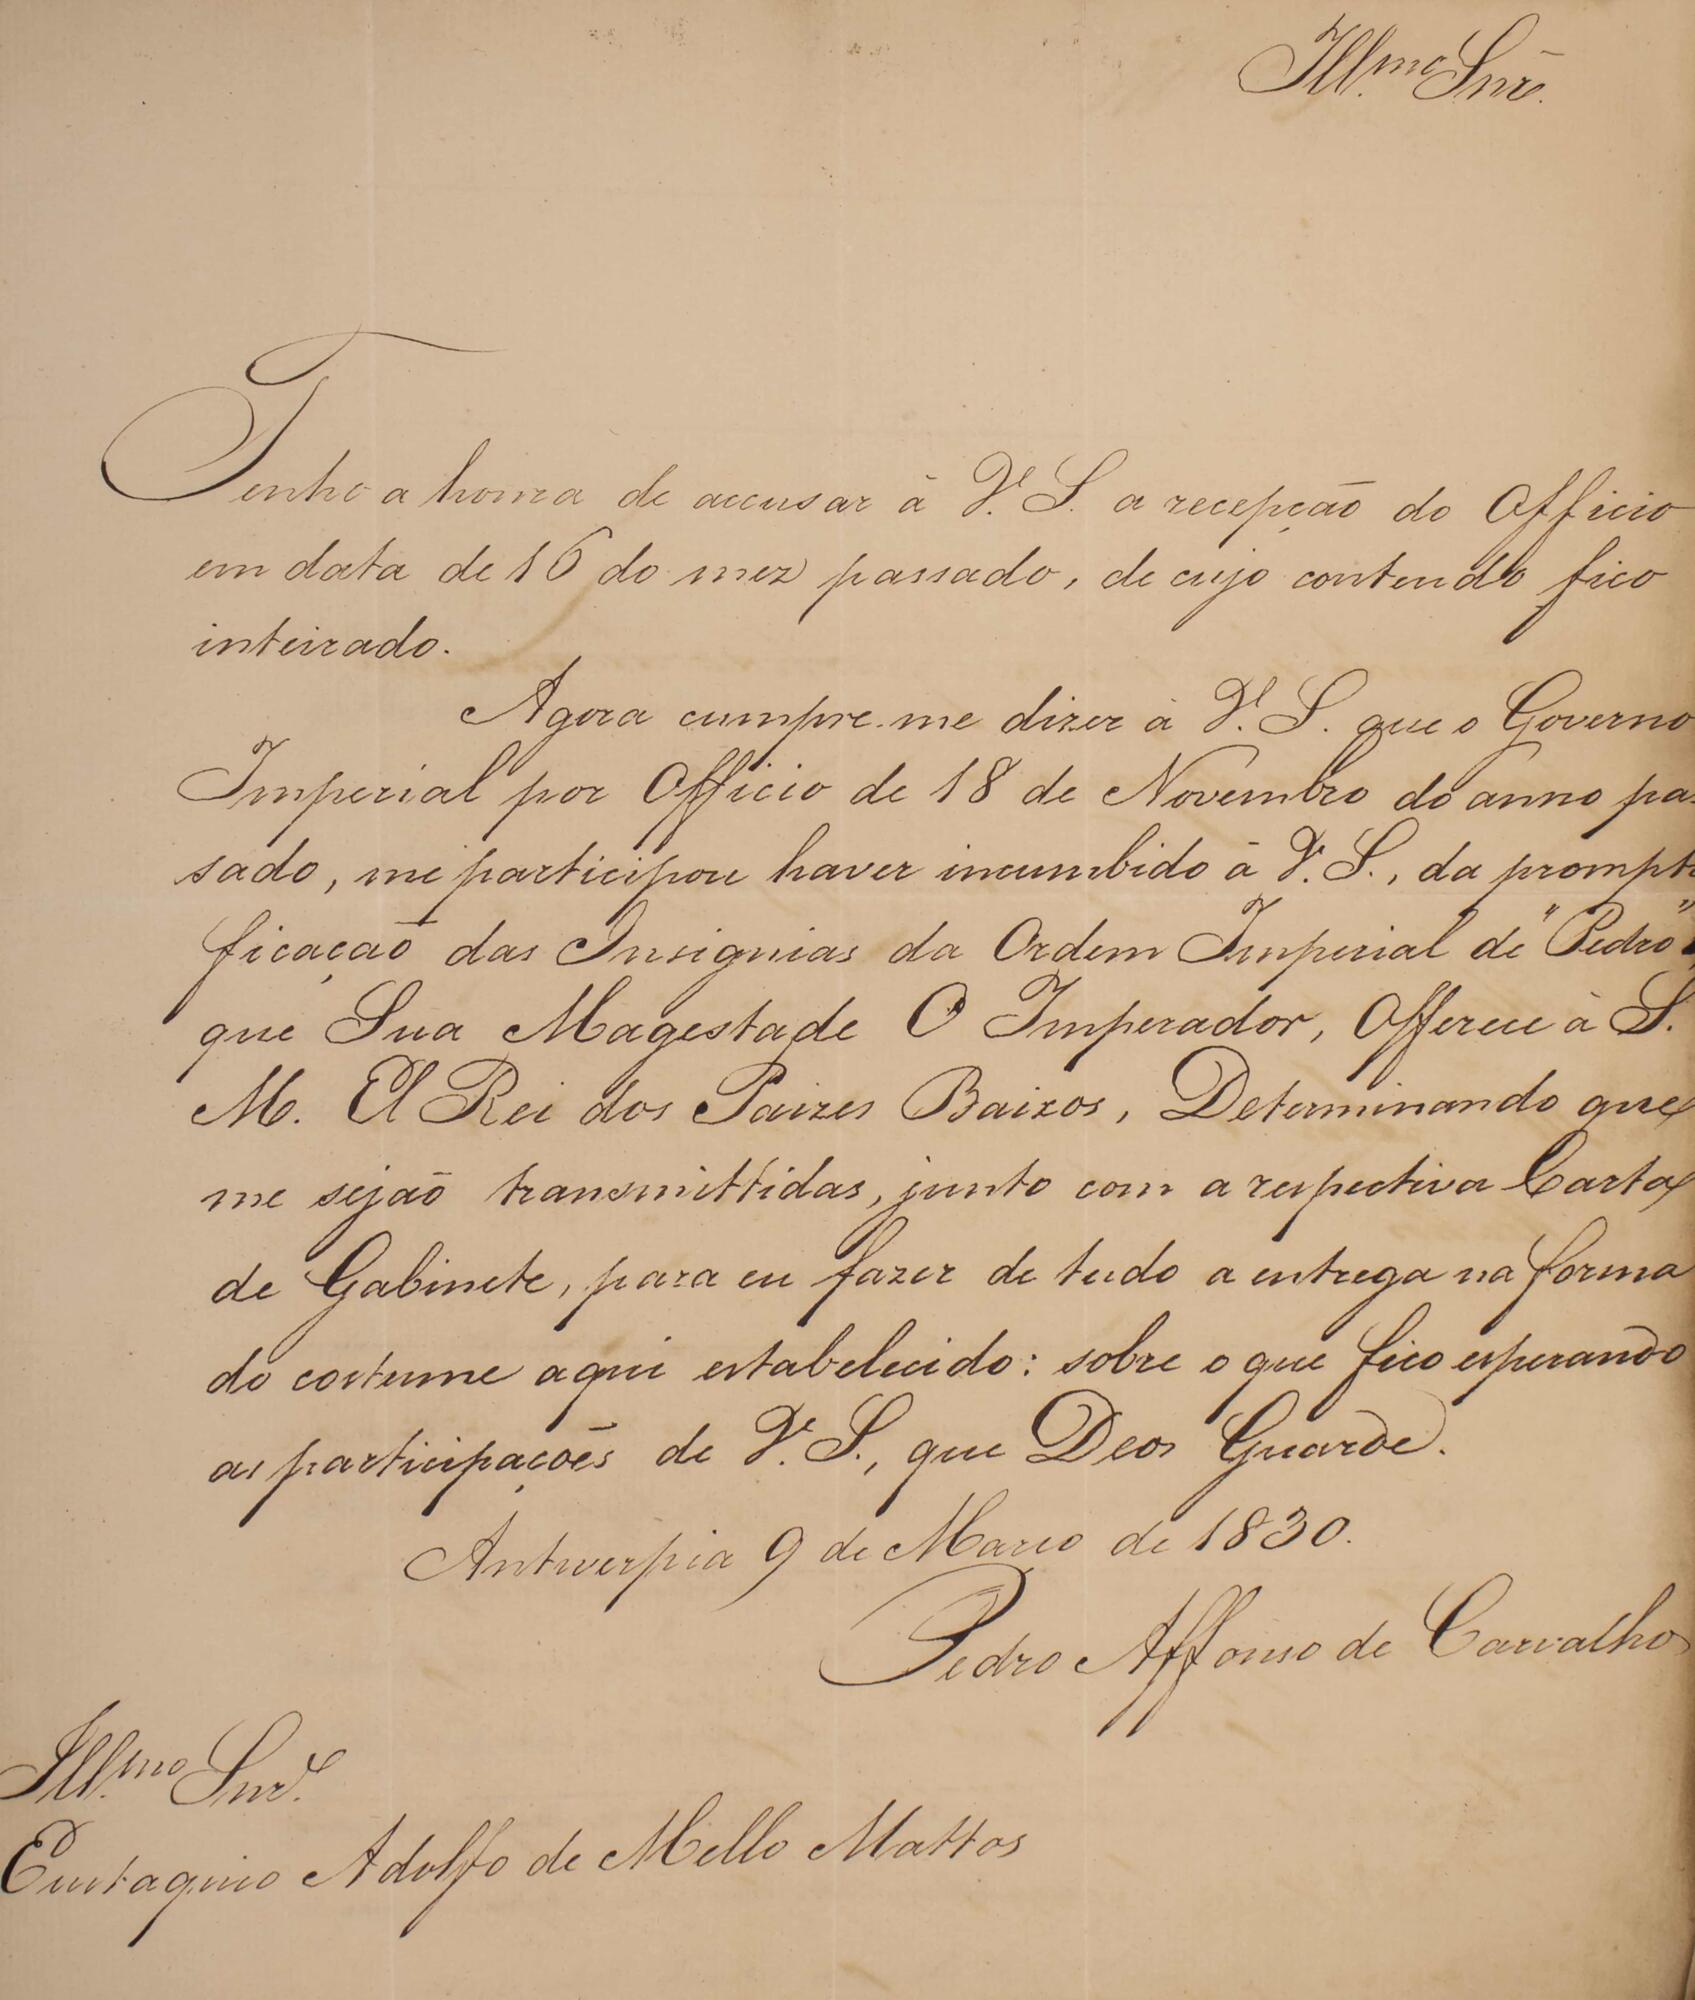 Ill.mo Snr̃.
Tenho a honra de accusar à V. S. a recepção do Officio
em data de 16 do mez passado, de cujo contendo fico
inteirado.
Agora cumpre-me dizer à V. S. que o Governo
Imperial por Officio de 18 de Novembro do anno pas
sado, me participou haver incumbido à V. S., da prompti
ficação das Insignias da Ordem Imperial de "Pedro"
que Sua Magestade O Imperador, Offerece à S.
M. El Rei dos Paizes Baixos, Determinando que
me sejão transmittidas, junto com a respectiva Carta
de Gabinete, para eu fazer de tudo a entrega na forma
do costume aqui estabelecido: sobre o que fico esperando
as participações de V. S., que Deos Guarde.
Antwerpia 9 de Marco de 1830.
Pedro Affonso de Carvalho
Ill.mo Snr.
Eustaquio Adolfo de Mello Mattos